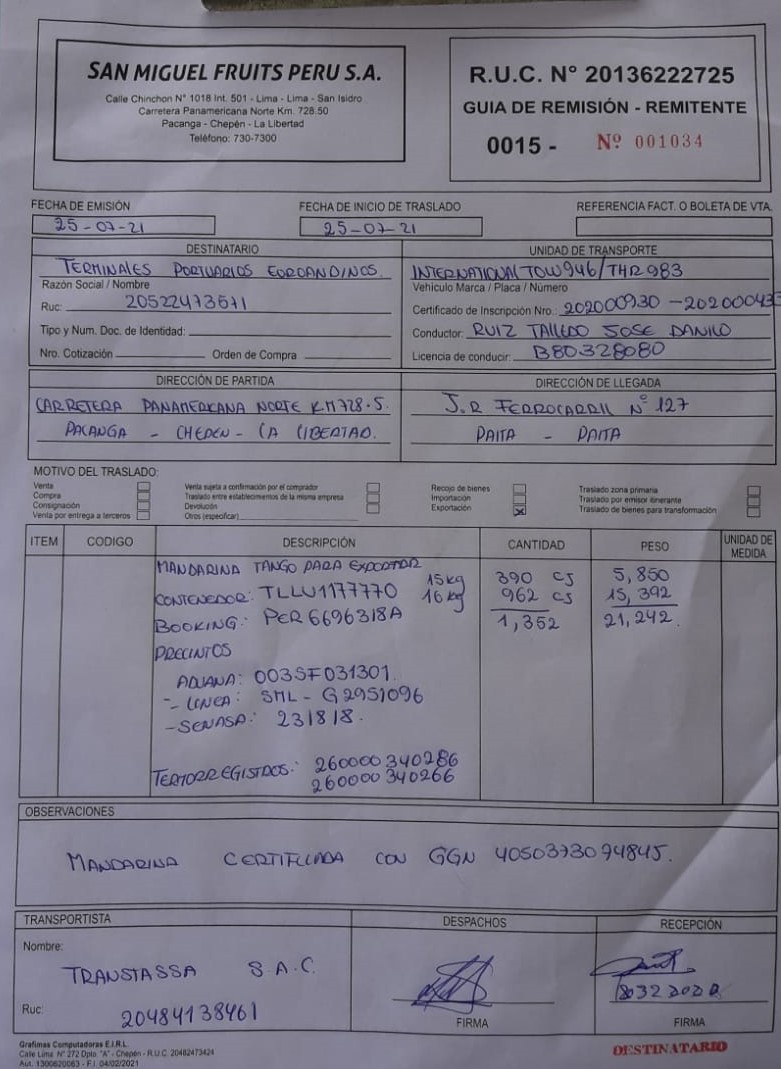 SAN MIGUEL FRUITS PERU S.A.
Calle Chinchon N° 1018 Int. 501 - Lima - Lima - San Isidro
Carretera Panamericana Norte Km. 728.50
Pacanga - Chepén - La Libertad
Teléfono: 730-7300
R.U.C. N° 20136222725
GUIA DE REMISIÓN - REMITENTE
0015 - Nº 001034
FECHA DE EMISIÓN
25-07-21
FECHA DE INICIO DE TRASLADO
25-07-21
REFERENCIA FACT. O BOLETA DE VTA.
DESTINATARIO
TERMINALES PORTUARIOS EUROANDINOS.
Razón Social / Nombre
Ruc: 20522473571
Tipo y Num. Doc. de Identidad:
Nro. Cotización Orden de Compra
UNIDAD DE TRANSPORTE
INTERNATIONAL TOW946/THR983
Vehículo Marca / Placa / Número
Certificado de Inscripción Nro.: 202000930 -
Conductor: RUIZ TALLEDO JOSE DANILO
Licencia de conducir: B80328080
DIRECCIÓN DE PARTIDA
CARRETERA PANAMERICANA NORTE KM728.5.
PACANGA - CHEPEN - LA LIBERTAD.
DIRECCIÓN DE LLEGADA
J.R FERROCARRIL Nº 127
PAITA - PAITA
MOTIVO DEL TRASLADO:
Venta
Compra
Consignación
Venta por entrega a terceros
Venta sujeta a confirmación por el comprador
Traslado entre establecimientos de la misma empresa
Devolución
Otros (especificar)
Recojo de bienes
Importación
Exportación X
Traslado zona primaria
Traslado por emisor itinerante
Traslado de bienes para transformación
ITEM CODIGO DESCRIPCIÓN CANTIDAD PESO UNIDAD DE MEDIDA
MANDARINA TANGO PARA EXPORTAR
15kg 390 CJ 5,850
CONTENEDOR: TLLU1177770 16kg 962 CJ 15,392
BOOKING: PER6696318A 1,352 21,242.
PRECINTOS
ADUANA: 003SF031301.
- LINEA: SML - G2951096
- SENASA: 231818.
TERMORREGISTROS: 260000340286
260000340266
OBSERVACIONES
MANDARINA CERTIFICADA CON GGN 4050373094845.
TRANSPORTISTA
Nombre:
TRANSTASSA S.A.C.
Ruc: 20484138461
DESPACHOS
FIRMA
RECEPCIÓN
FIRMA
Grafimas Computadoras E.I.R.L.
Calle Lima N° 272 Dpto. "A" - Chepén - R.U.C. 20482473424
Aut. 1300620063 - F.I. 04/02/2021
DESTINATARIO